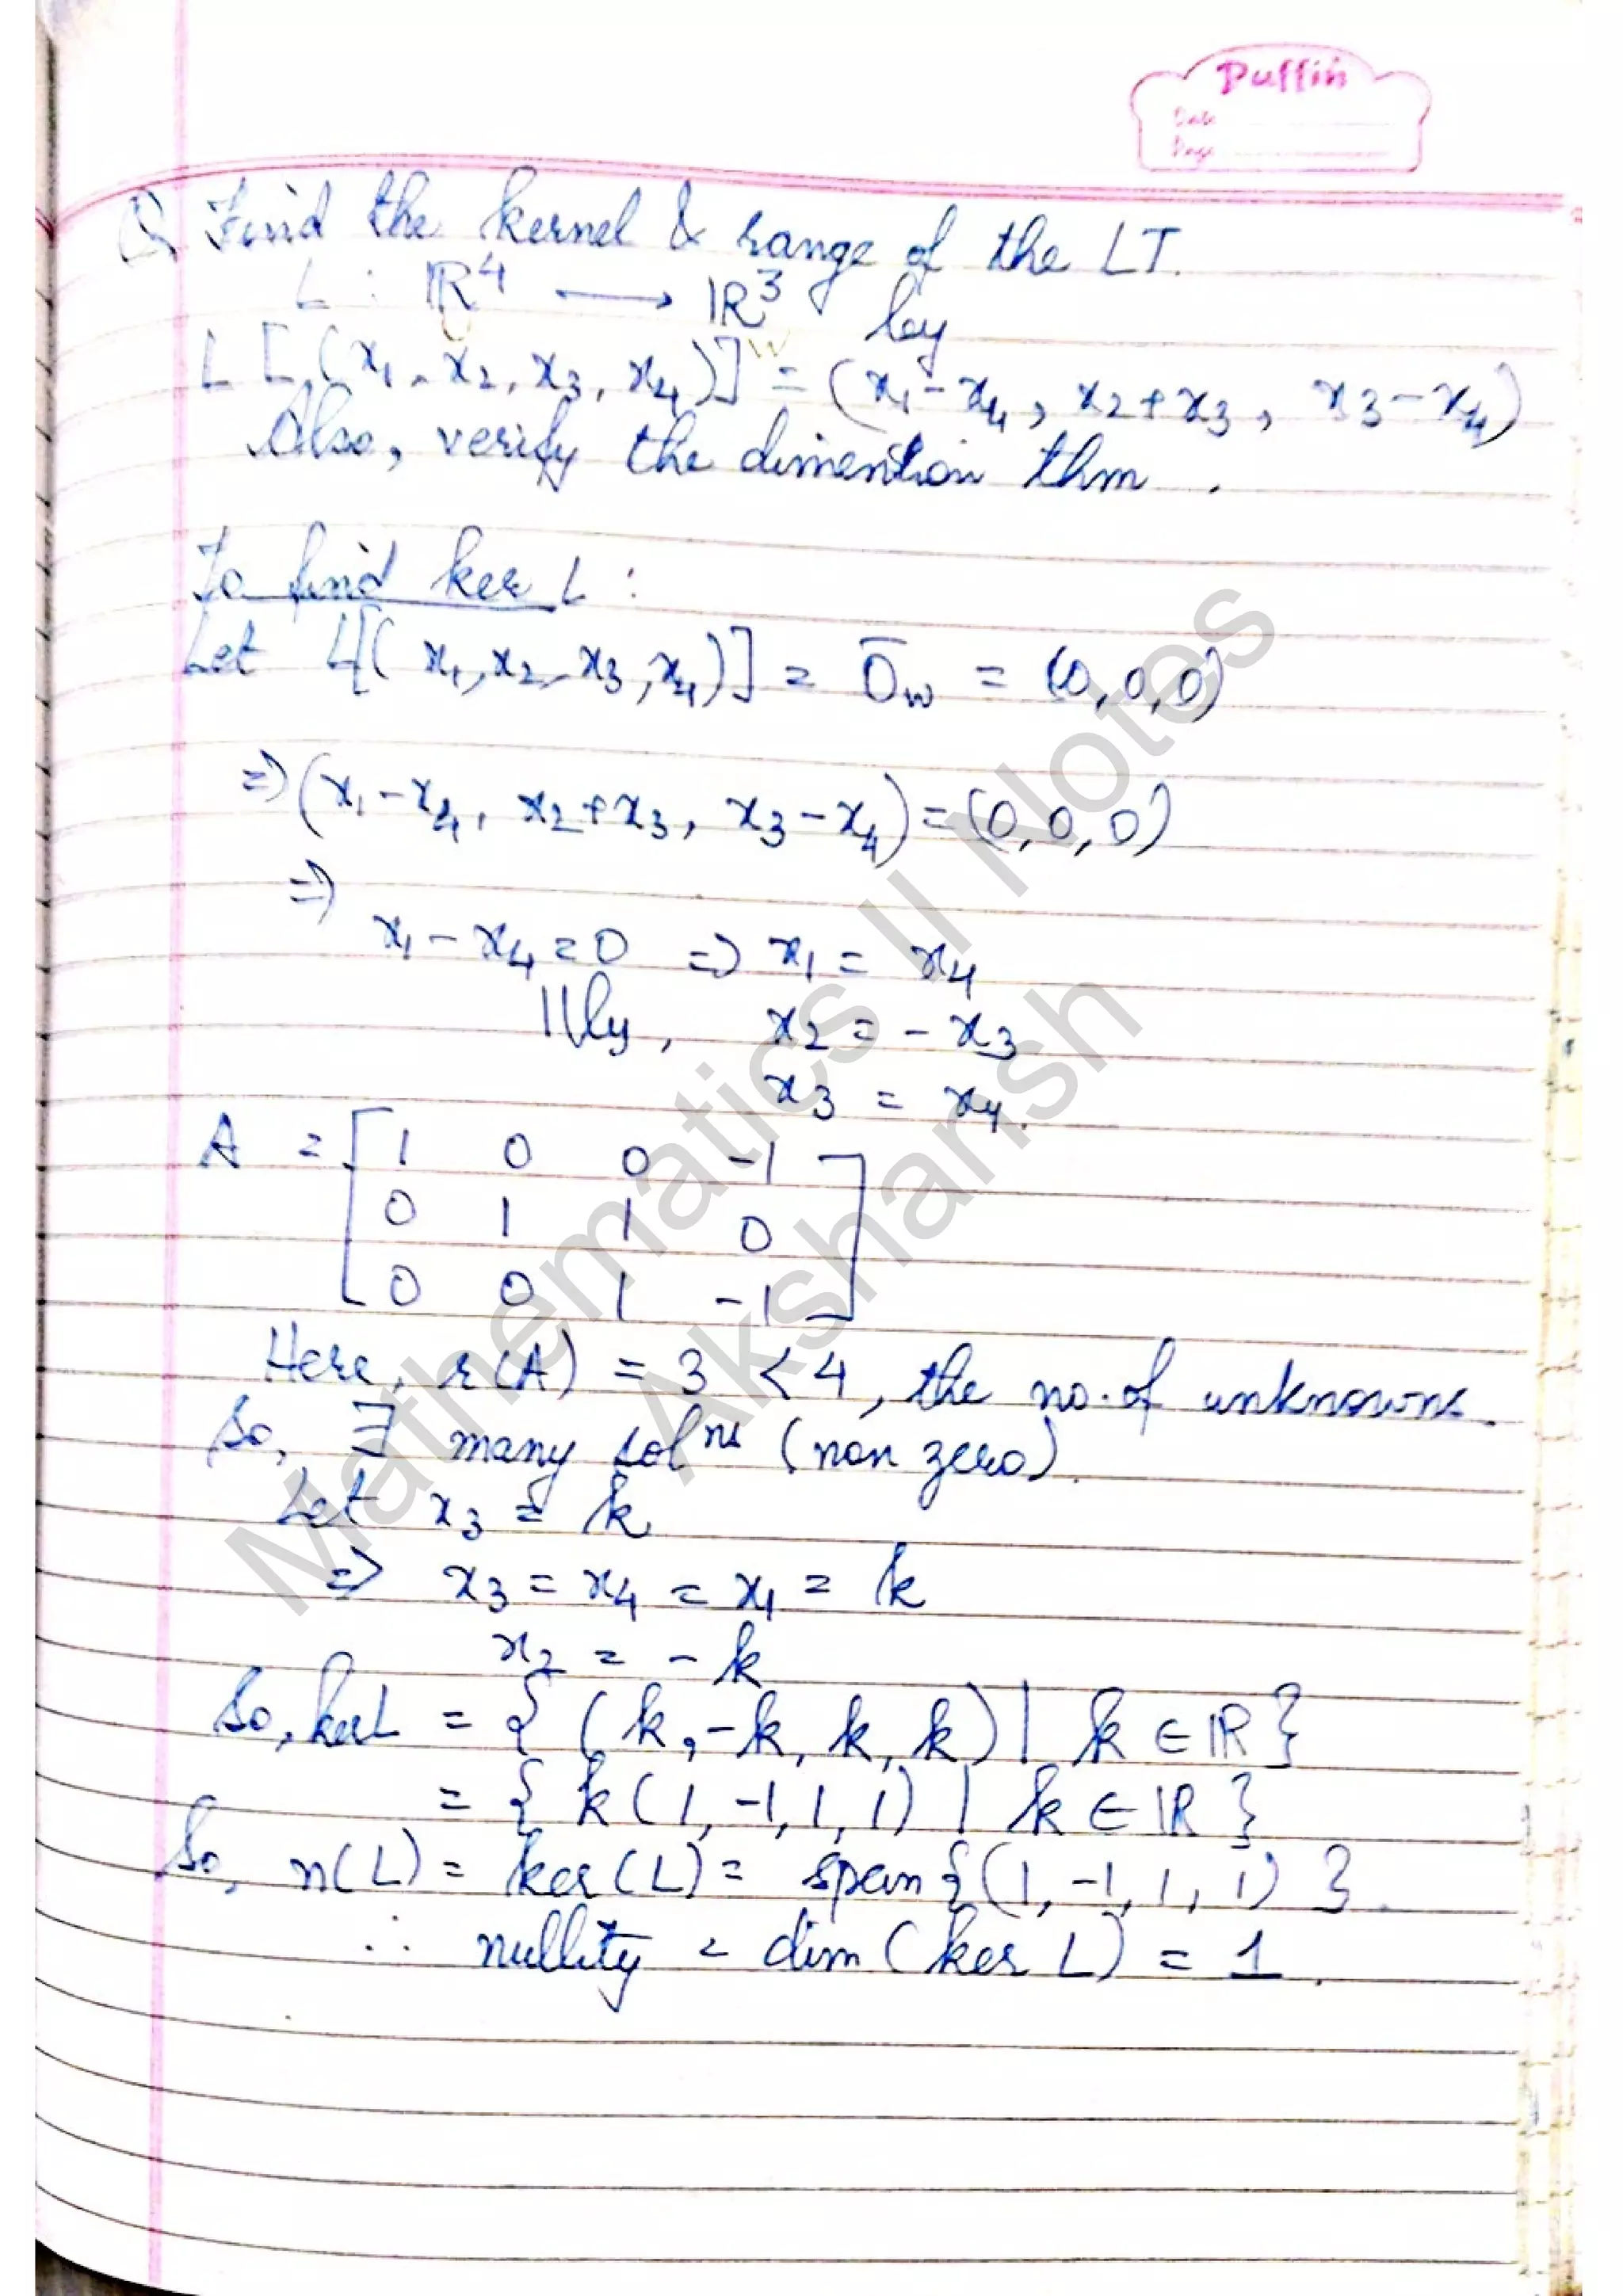 Puffin
Date
Page
Q Find the kernel & range of the LT.
L : ℝ⁴ ⟶ ℝ³ by
L[(x₁, x₂, x₃, x₄)] = (x₁-x₄, x₂+x₃, x₃-x₄)
Also, verify the dimention thm.
To find ker L :
Let L[(x₁, x₂, x₃, x₄)] = 0̄w = (0,0,0)
⇒(x₁-x₄, x₂+x₃, x₃-x₄)=(0,0,0)
⇒
x₁-x₄=0 ⇒ x₁= x₄
||ly, x₂ = -x₃
x₃ = x₄.
A = [ 1 0 0 -1
0 1 1 0
0 0 1 -1 ]
Here, r(A) = 3 < 4, the no. of unknowns.
So, ∃ many solⁿˢ (non zero).
Let x₃ = k
⇒ x₃ = x₄ = x₁ = k
x₂ = -k
So, kerL = { (k,-k, k, k) | k ∈ ℝ }
= { k(1,-1,1,1) | k ∈ ℝ }
So, n(L) = ker(L) = span{(1,-1,1,1)}.
∴ nullity = dim(ker L) = 1.
Mathematics II Notes
Akshansh